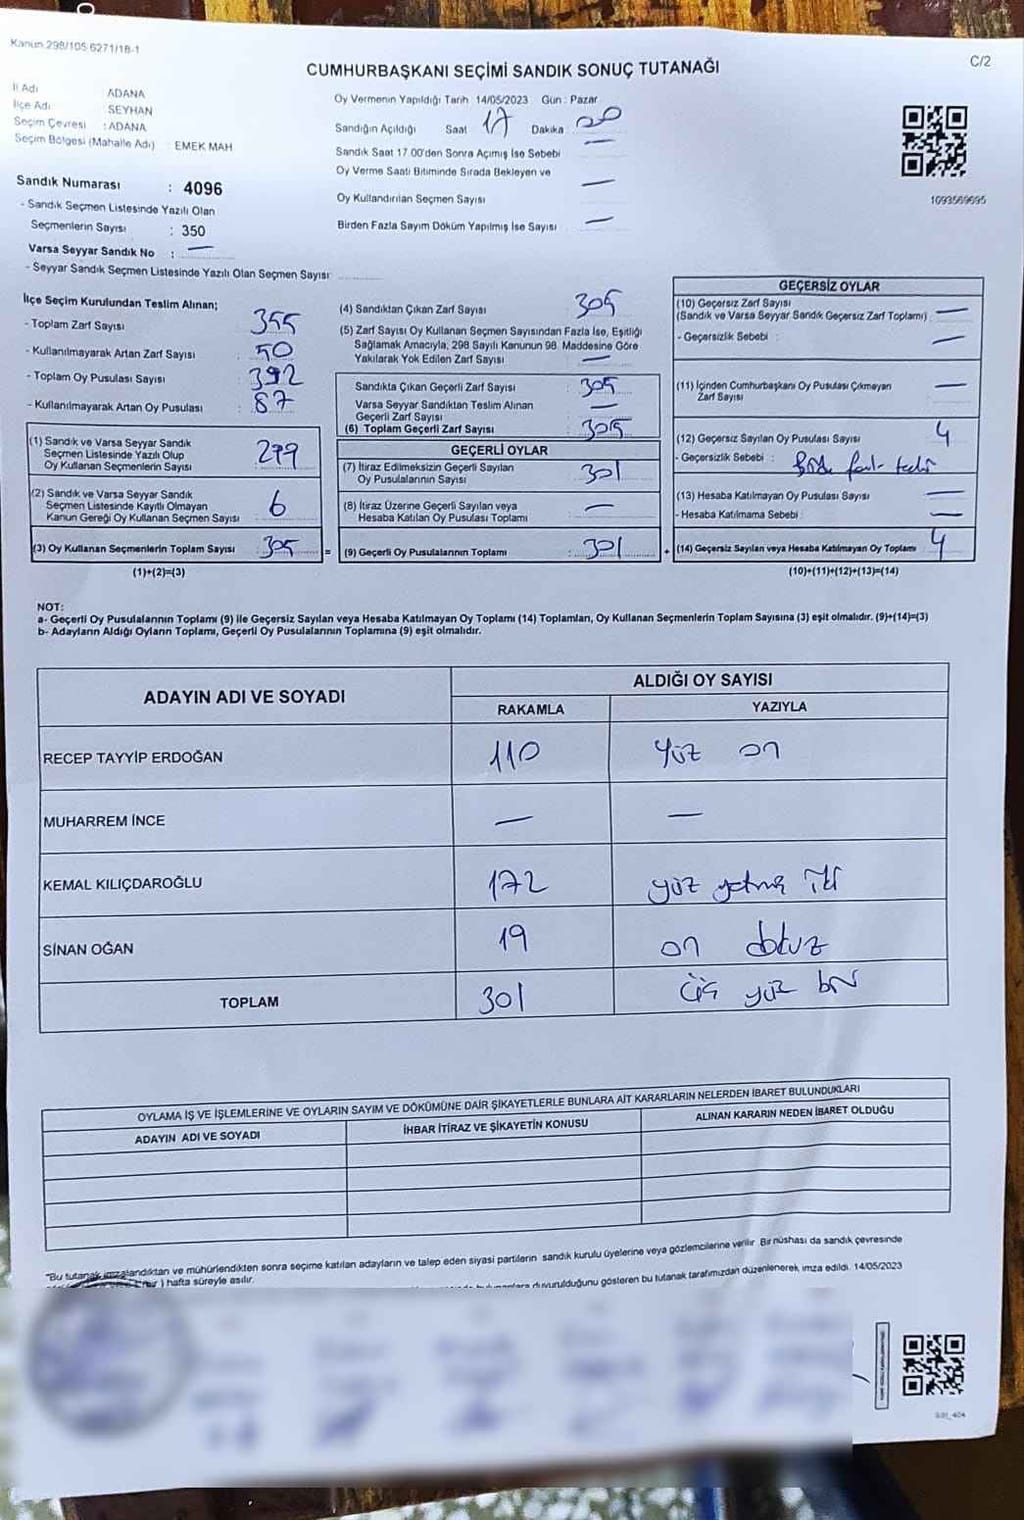 Kanun 298/105 6271/18-1
C/2
CUMHURBAŞKANI SEÇİMİ SANDIK SONUÇ TUTANAĞI
İl Adı : ADANA
İlçe Adı : SEYHAN
Seçim Çevresi : ADANA
Seçim Bölgesi (Mahalle Adı) : EMEK MAH
Sandık Numarası : 4096
- Sandık Seçmen Listesinde Yazılı Olan
Seçmenlerin Sayısı : 350
Varsa Seyyar Sandık No : —
- Seyyar Sandık Seçmen Listesinde Yazılı Olan Seçmen Sayısı :
Oy Vermenin Yapıldığı Tarih 14/05/2023 Gün : Pazar
Sandığın Açıldığı Saat 17 Dakika 20
Sandık Saat 17.00'den Sonra Açılmış İse Sebebi —
Oy Verme Saati Bitiminde Sırada Bekleyen ve
Oy Kullandırılan Seçmen Sayısı —
Birden Fazla Sayım Döküm Yapılmış İse Sayısı —
1093569695
İlçe Seçim Kurulundan Teslim Alınan;
- Toplam Zarf Sayısı : 355
- Kullanılmayarak Artan Zarf Sayısı : 50
- Toplam Oy Pusulası Sayısı : 392
- Kullanılmayarak Artan Oy Pusulası : 87
(1) Sandık ve Varsa Seyyar Sandık
Seçmen Listesinde Yazılı Olup
Oy Kullanan Seçmenlerin Sayısı : 299
(2) Sandık ve Varsa Seyyar Sandık
Seçmen Listesinde Kayıtlı Olmayan
Kanun Gereği Oy Kullanan Seçmen Sayısı : 6
(3) Oy Kullanan Seçmenlerin Toplam Sayısı : 305
(1)+(2)=(3)
(4) Sandıktan Çıkan Zarf Sayısı : 305
(5) Zarf Sayısı Oy Kullanan Seçmen Sayısından Fazla İse, Eşitliği
Sağlamak Amacıyla, 298 Sayılı Kanunun 98. Maddesine Göre
Yakılarak Yok Edilen Zarf Sayısı : —
Sandıkta Çıkan Geçerli Zarf Sayısı : 305
Varsa Seyyar Sandıktan Teslim Alınan
Geçerli Zarf Sayısı : —
(6) Toplam Geçerli Zarf Sayısı : 305
GEÇERLİ OYLAR
(7) İtiraz Edilmeksizin Geçerli Sayılan
Oy Pusulalarının Sayısı : 301
(8) İtiraz Üzerine Geçerli Sayılan veya
Hesaba Katılan Oy Pusulası Toplamı : —
= (9) Geçerli Oy Pusulalarının Toplamı : 301 +
GEÇERSİZ OYLAR
(10) Geçersiz Zarf Sayısı
(Sandık ve Varsa Seyyar Sandık Geçersiz Zarf Toplamı) : —
- Geçersizlik Sebebi : —
(11) İçinden Cumhurbaşkanı Oy Pusulası Çıkmayan
Zarf Sayısı —
(12) Geçersiz Sayılan Oy Pusulası Sayısı 4
- Geçersizlik Sebebi :
(13) Hesaba Katılmayan Oy Pusulası Sayısı —
- Hesaba Katılmama Sebebi : —
(14) Geçersiz Sayılan veya Hesaba Katılmayan Oy Toplamı 4
(10)+(11)+(12)+(13)=(14)
NOT:
a- Geçerli Oy Pusulalarının Toplamı (9) ile Geçersiz Sayılan veya Hesaba Katılmayan Oy Toplamı (14) Toplamları, Oy Kullanan Seçmenlerin Toplam Sayısına (3) eşit olmalıdır. (9)+(14)=(3)
b- Adayların Aldığı Oyların Toplamı, Geçerli Oy Pusulalarının Toplamına (9) eşit olmalıdır.
ADAYIN ADI VE SOYADI ALDIĞI OY SAYISI
RAKAMLA YAZIYLA
RECEP TAYYİP ERDOĞAN 110 yüz on
MUHARREM İNCE — —
KEMAL KILIÇDAROĞLU 172 yüz yetmiş iki
SİNAN OĞAN 19 on dokuz
TOPLAM 301 üç yüz bir
OYLAMA İŞ VE İŞLEMLERİNE VE OYLARIN SAYIM VE DÖKÜMÜNE DAİR ŞİKAYETLERLE BUNLARA AİT KARARLARIN NELERDEN İBARET BULUNDUKLARI
ADAYIN ADI VE SOYADI İHBAR İTİRAZ VE ŞİKAYETİN KONUSU ALINAN KARARIN NEDEN İBARET OLDUĞU
"Bu tutanak imzalandıktan ve mühürlendikten sonra seçime katılan adayların ve talep eden siyasi partilerin sandık kurulu üyelerine veya gözlemcilerine verilir. Bir nüshası da sandık çevresinde
) hafta süreyle asılır.
duyurulduğunu gösteren bu tutanak tarafımızdan düzenlenerek, imza edildi. 14/05/2023